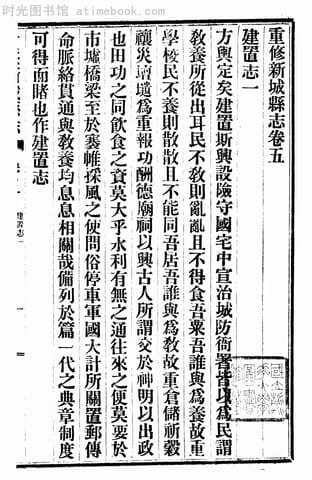 时光图书馆 - atimebook.com
重修新城縣志卷五
建置志一
方輿定矣建置斯興設險守國宅中宣治城防衙署皆以為民謂
敎養所從出耳民不敎則亂亂且不得食吾粟吾誰與為養故重
學校民不養則散散且不能同吾居吾誰與為敎故重倉儲祈穀
禳災壇壝為重報功酬德廟祠以興古人所謂交於神明以出政
也田功之同飮食之資莫大乎水利有無之通往來之便莫要於
市墟橋梁至於褰帷採風之使問俗停車軍國大計所關置郵傳
命脈絡貫通與敎養均息息相關哉備列於篇一代之典章制度
可得而睹也作建置志
建置志一
一